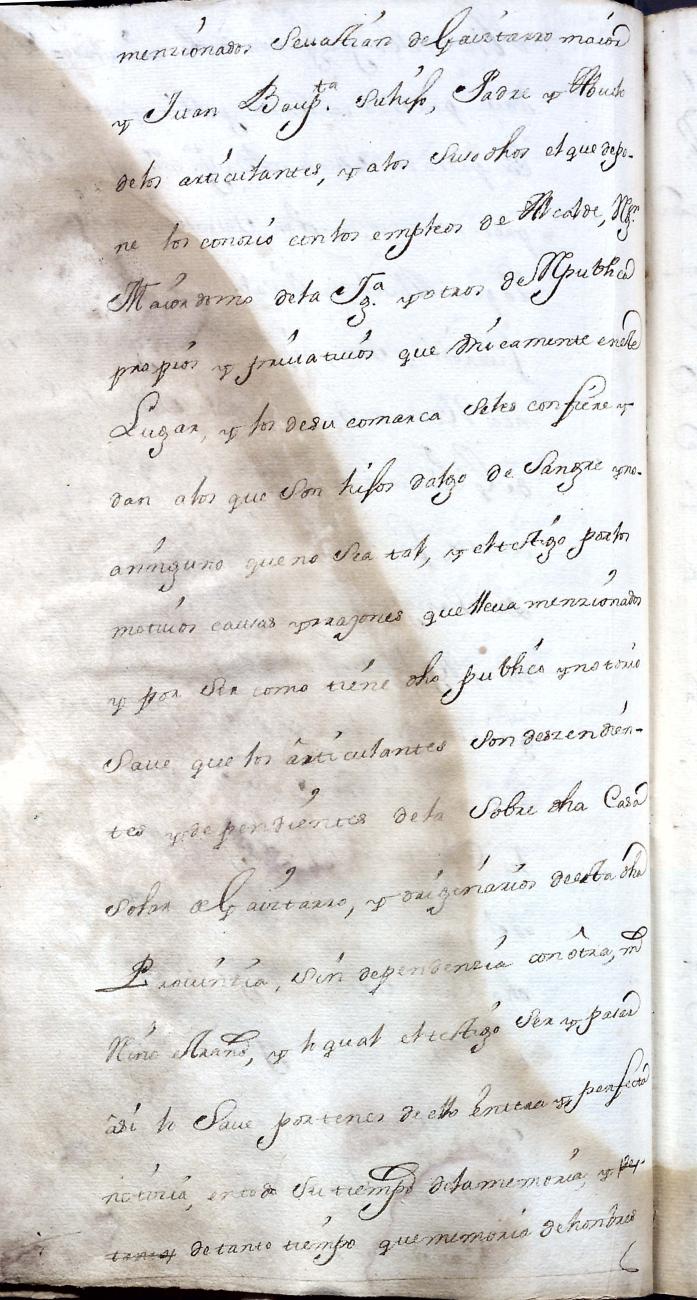 menzionados Sevastian de Gaiztarro maior
y Juan Baup.ta su hijo, Padre y Abuelo
delos articulantes, y alos Susodhos el que depo-
ne los conozio en los empleos de Alcalde, Rexr.
Maiordomo dela Ig.a y otros de Republica
propios y privativos que unicamente en este
Lugar, y los desu comarca Seles confiere y
dan alos que Son hijos dalgo de Sangre y no-
aninguno que no Sea tal, y el testigo por los
motivos causas y rrazones que lleva menzionados
y por Ser como tiene dho publico y notorio
Save que los articulantes Son deszendien-
tes y dependientes dela Sobre dha Casa
Solar de Gaiztarro, y originarios deesta dha
Provintia, Sin dependenzia con otra, ni
Reino estraño, y lo qual el testigo Ser y pasar
asi lo Save por tener de ello entera y perfecta
notizia, en todo Su tiempo dela memoria, y
de tanto tiempo que memoria de hombres